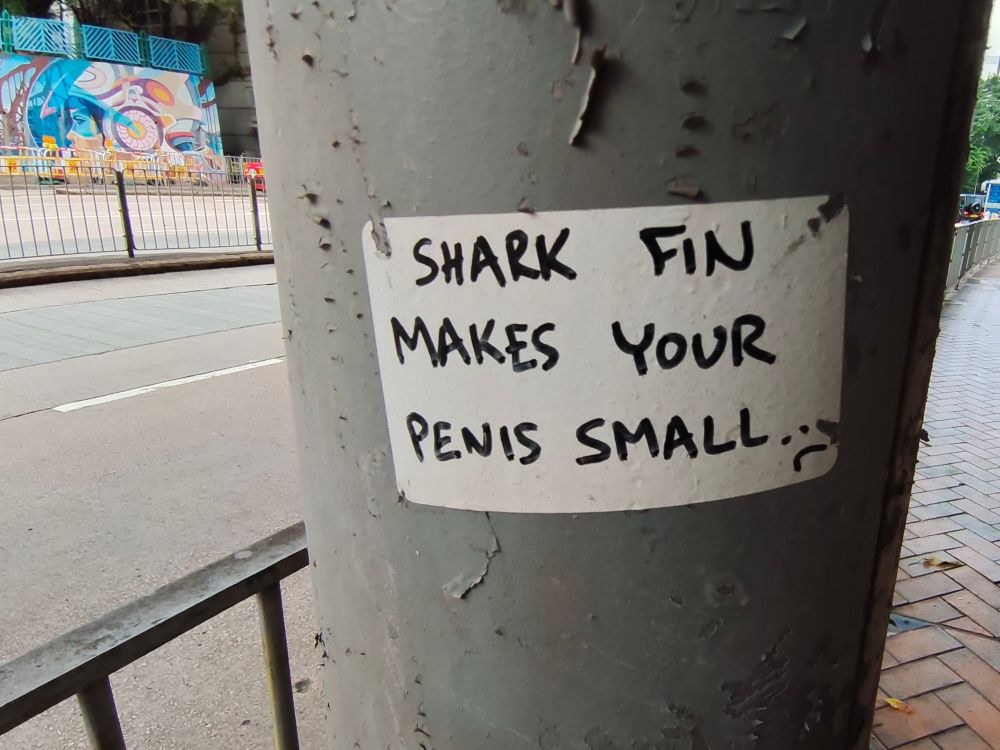 SHARK FIN
MAKES YOUR
PENIS SMALL..